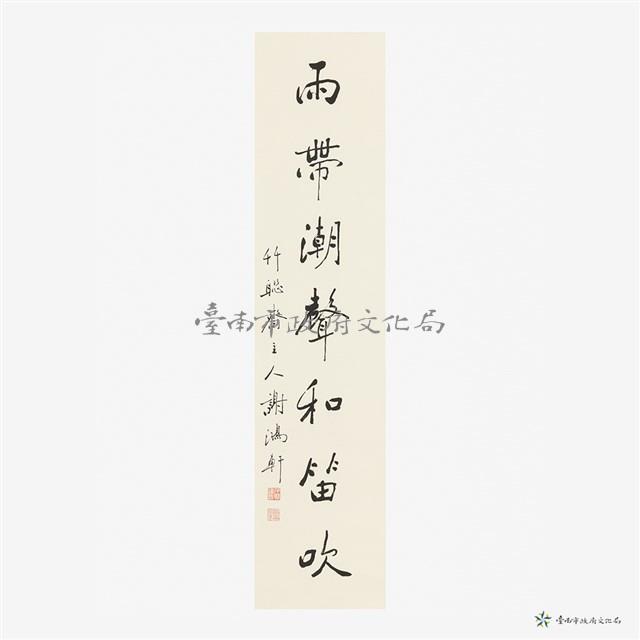 雨帶潮聲和笛吹
千聯齋主人謝鴻軒
臺南市政府文化局
臺南市政府文化局